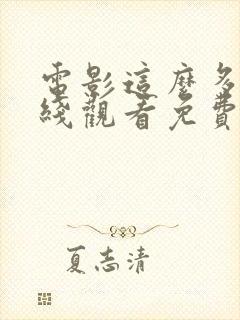 電影這麼多
綫觀看免費
夏志清